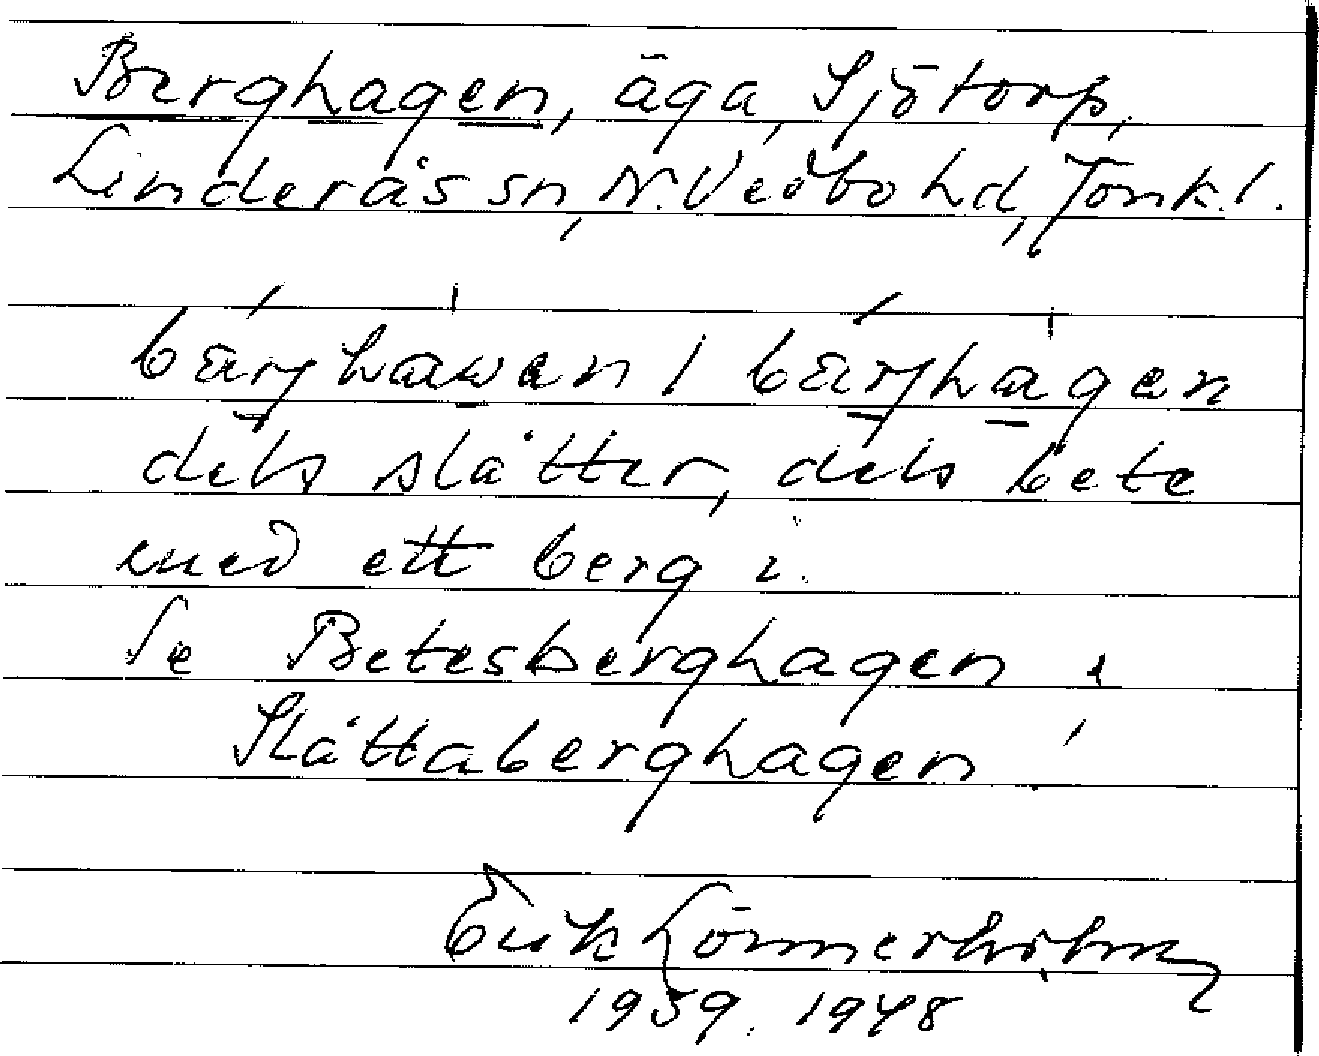 Berghagen, äga, Sjötorp,
Linderås sn, N. Vedbo hd, Jönk. l.
bärjhawen / bärjhagen
dels slåtter, dels bete
med ett berg i.
Se Betesberghagen,
Slåttaberghagen!
Erik Lönnerholm
1959. 1948